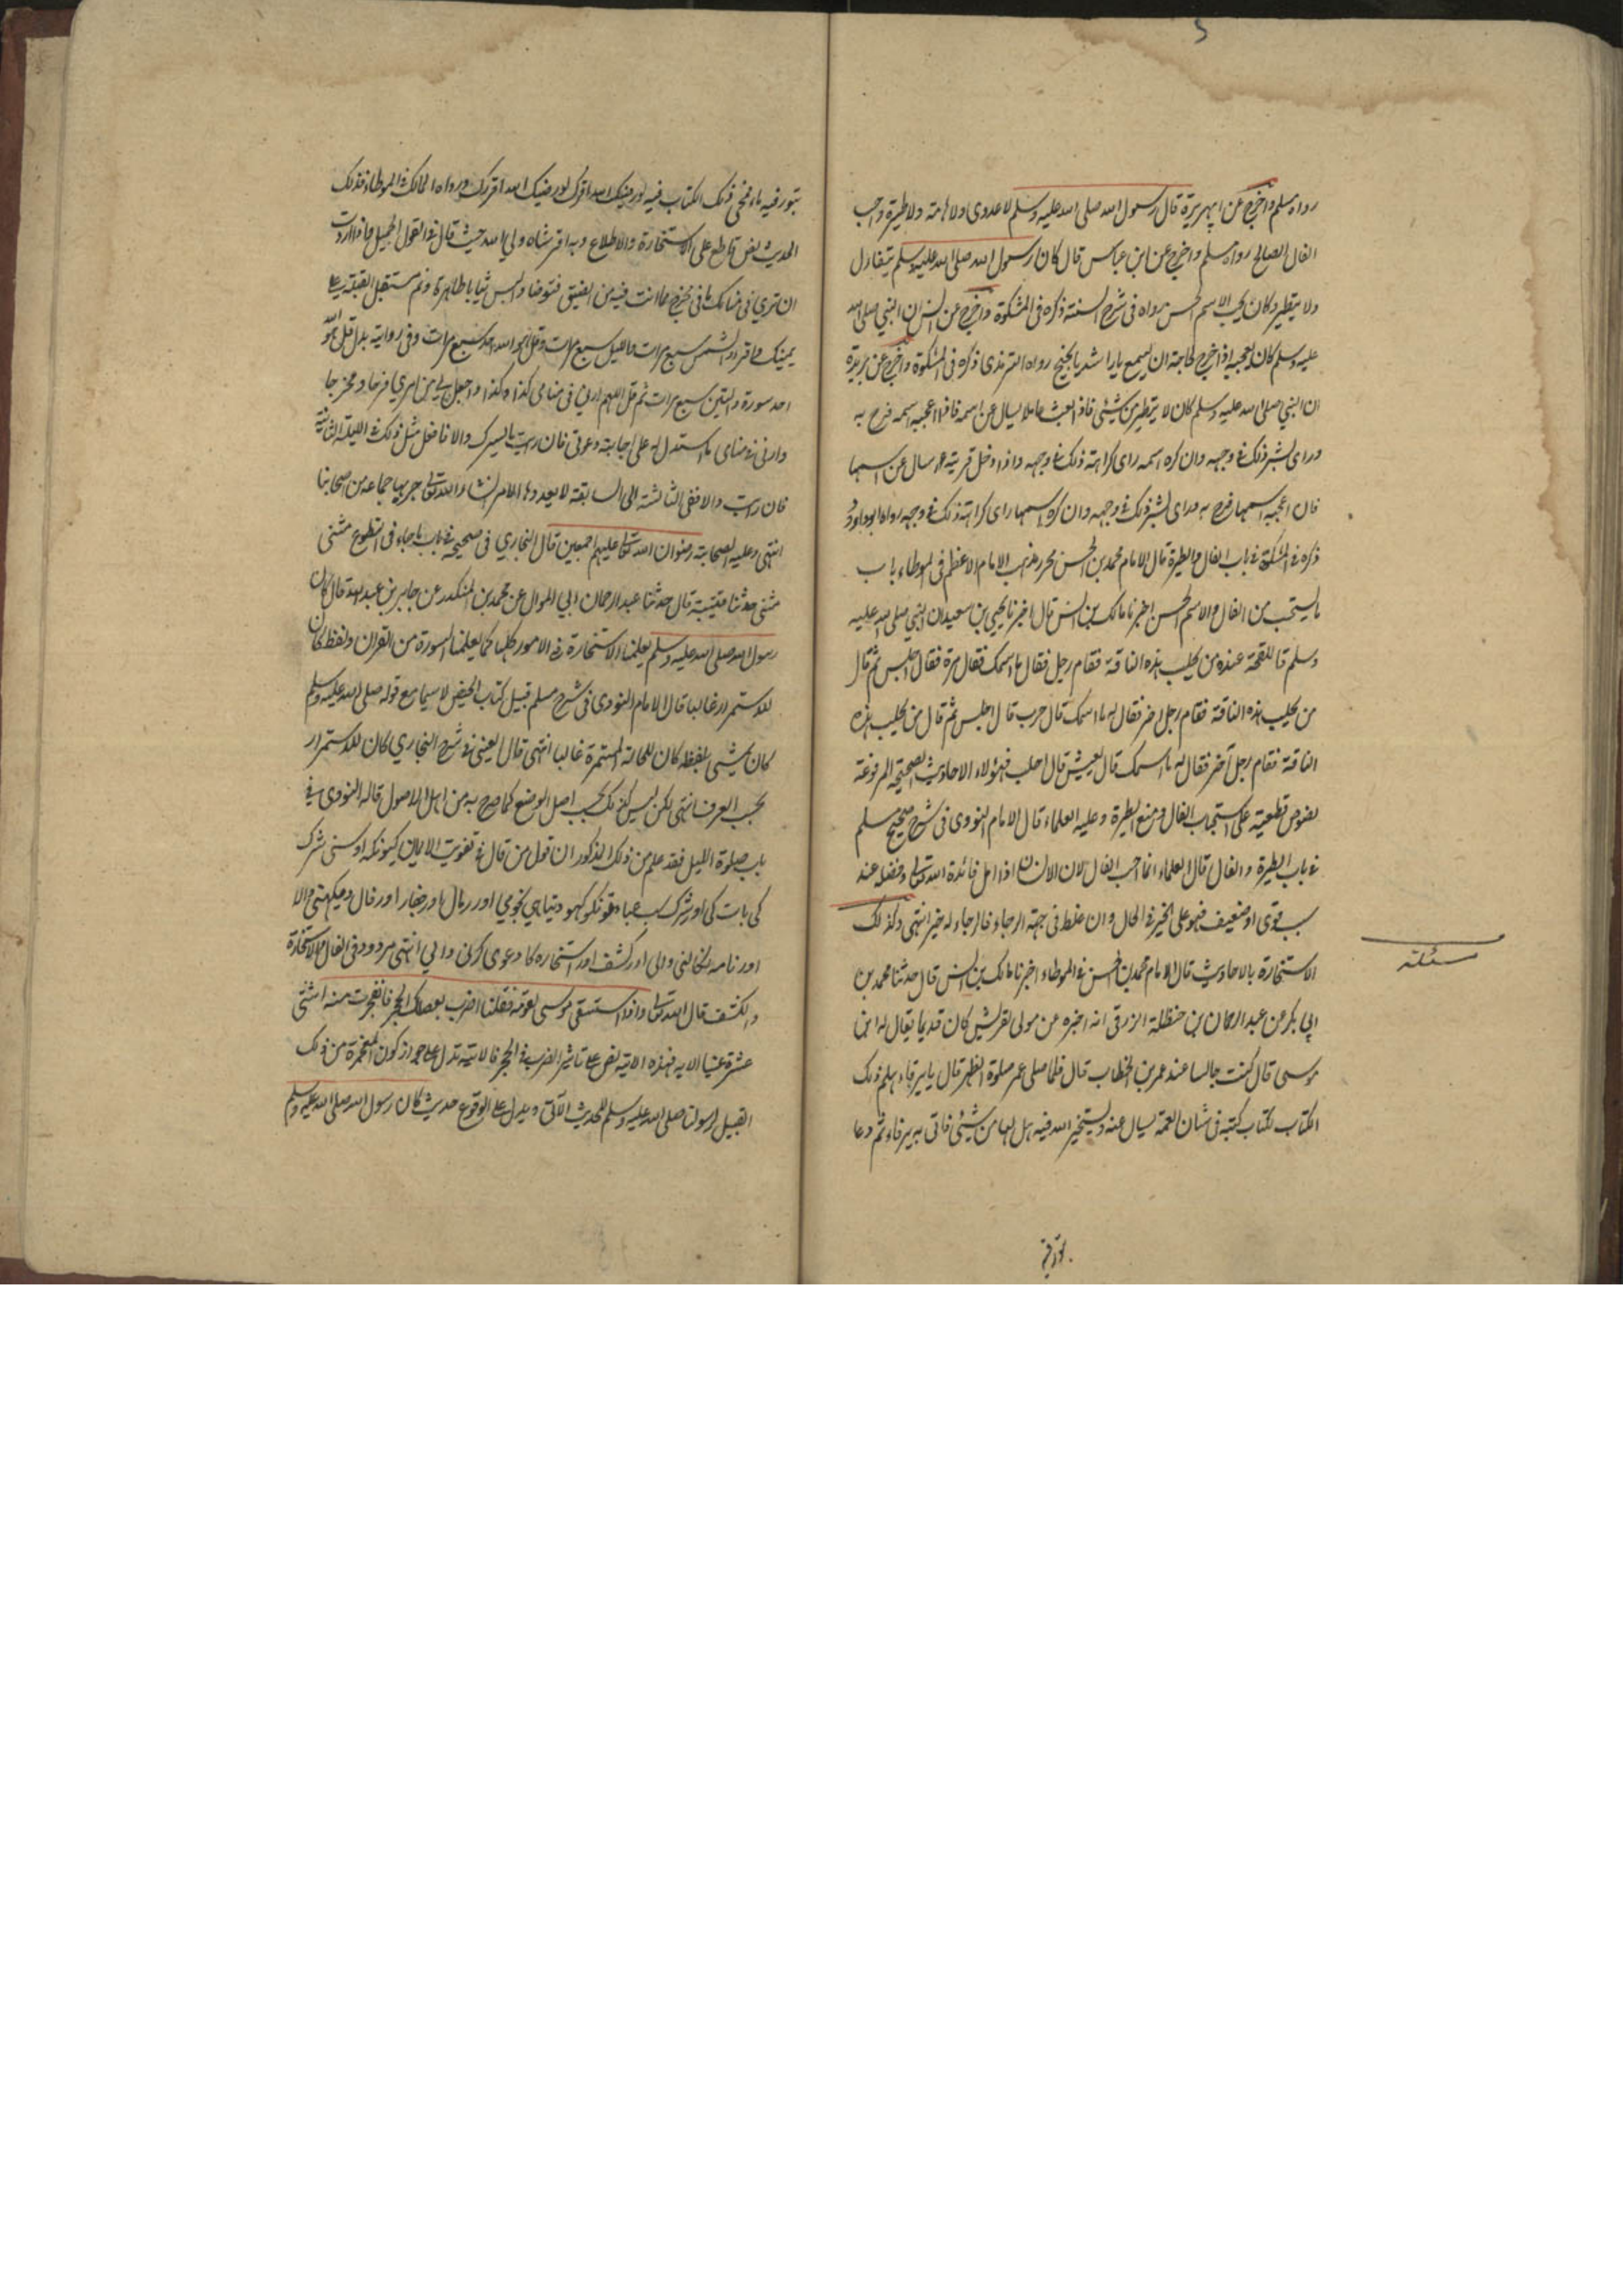 رواه مسلم واخرج عن ابي هريرة قال رسول الله صلى الله عليه وسلم لا عدوى ولا هامة ولا طيرة واحب
الفال الصالح رواه مسلم واخرج عن ابن عباس قال كان رسول الله صلى الله عليه وسلم يتفاءل
ولا يتطير وكان يحب الاسم الحسن رواه في شرح السنة ذكره في المشكوة واخرج عن انس ان النبي صلى الله
عليه وسلم كان يعجبه اذا خرج لحاجة ان يسمع يا راشد يا نجيح رواه الترمذي ذكره في المشكوة واخرج عن بريدة
ان النبي صلى الله عليه وسلم كان لا يتطير من شئي فاذا بعث عاملا يسال عن اسمه فاذا اعجبه اسمه فرح به
وراى بشر ذلك في وجهه وان كره اسمه راى كراهة ذلك في وجهه واذا دخل قرية سال عن اسمها
فان اعجبه اسمها فرح به وراى بشر ذلك في وجهه وان كره اسمها راى كراهة ذلك في وجهه رواه ابو داود
ذكره في المشكوة في باب الفال والطيرة قال الامام محمد بن الحسن محرر مذهب الامام الاعظم في الموطاء باب
ما يستحب من الفال والاسم الحسن اخبرنا مالك بن انس قال اخبرنا يحيي بن سعيد ان النبي صلى الله عليه
وسلم قال للقحة عنده من يحلب هذه الناقة فقام رجل فقال ما اسمك فقال مرة فقال اجلس ثم قال
من يحلب هذه الناقة فقام رجل اخر فقال له ما اسمك قال حرب قال اجلس ثم قال من يحلب هذه
الناقة فقام رجل آخر فقال له ما اسمك قال يعيش قال احلب فهؤلاء الاحاديث الصحيحة المرفوعة
نصوص قطعية على استحباب الفال ومنع الطيرة وعليه العلماء قال الامام النووي في شرح صحيح مسلم
في باب الطيرة والفال قال العلماء انما احب الفال لان الانسان اذا امل فائدة الله تعالى وفضله عند
سبب قوى او ضعيف فهو على الخير في الحال وان غلط في جهة الرجاء فالرجاء له خير انتهى وكذلك
الاستخارة بالاحاديث قال الامام محمد بن الحسن في الموطاء اخبرنا مالك بن انس قال حدثنا محمد بن
ابي بكر عن عبد الرحمان بن حنظلة الزرقي انه اخبره عن مولى لقريش كان قديما يقال له ابن
موسى قال كنت جالسا عند عمر بن الخطاب قال فلما صلى عمر صلوة الظهر قال يا يرفاء هلم ذلك
الكتاب لكتاب كتبه في شان العمة يسال عنه ويستخير الله فيه هل لها من شيئ فاتى به يرفاء ثم دعا
مسئلة
بتور فيه ماء فمحى ذلك الكتاب فيه لو رضيك الله اقرك لو رضيك الله اقرك ورواه المالك في الموطاء فذلك
الحديث نص قاطع على الاستخارة والاطلاع وبه اقر شاه ولي الله حيث قال في القول الجميل فاذا اردت
ان ترى في منامك ما في مخرج مما انت فيه من الضيق فتوضا والبس ثيابا طاهرة ونم مستقبل القبلة على
يمينك واقرء والشمس سبع مرات والليل سبع مرات وقل هو الله احد سبع مرات وفي رواية بدل قل هو الله
احد سورة والتين سبع مرات ثم قل اللهم ارني في منامي كذا وكذا واجعل لي من امري فرجا ومخرجا
وارني في منامى ما استدل به على اجابة دعوتي فان رايت ما يسرك والا فافعل مثل ذلك في الليلة الثانية
فان رايت والا ففي الثالثة الى السابعة لا يعدوها الامر انشاء الله تعالى جربها جماعة من اصحابنا
انتهى وعليه الصحابة رضوان الله تعالى عليهم اجمعين قال البخاري في صحيحه في باب ما جاء في التطوع مثنى
مثنى حدثنا قتيبة قال حدثنا عبد الرحمان ابي الموال عن محمد بن المنكدر عن جابر بن عبد الله قال كان
رسول الله صلى الله عليه وسلم يعلمنا الاستخارة في الامور كلها كما يعلمنا السورة من القران ولفظ كان
للاستمرار غالبا قال الامام النووي في شرح مسلم قبيل كتاب الحيض لا سيما مع قوله صلى الله عليه وسلم
كان يمشي بلفظه كان للحالة المستمرة غالبا انتهى قال العيني في شرح البخاري كان للاستمرار
بحسب العرف انتهى لكن ليس كذلك بحسب اصل الوضع كما صرح به من اهل الاصول قاله النووي في
باب صلوة الليل فقد علم من ذلك المذكور ان قول من قال في تقوية الايمان كيونكه اوسنى شرك
كى بات كى اور شرك سب عبادتونكو كهو ديتا هي نجومي اور رمال اور جفار اور فال ديكهنى والا
اور نامه نكالنى والى اور كشف اور استخاره كا دعوى كرنى والي انتهى مردود في الفال والاستخارة
والكشف قال الله تعالى واذ استسقى موسى لقومه فقلنا اضرب بعصاك الحجر فانفجرت منه اثنتى
عشرة عينا الايه فهذه الاية نص على تاثير الضرب في الحجر فالاية تدل على جواز كون المعجزة من ذلك
القبيل لرسولنا صلى الله عليه وسلم للحديث الآتى ويدل على الوقوع حديث كان رسول الله صلى الله عليه وسلم